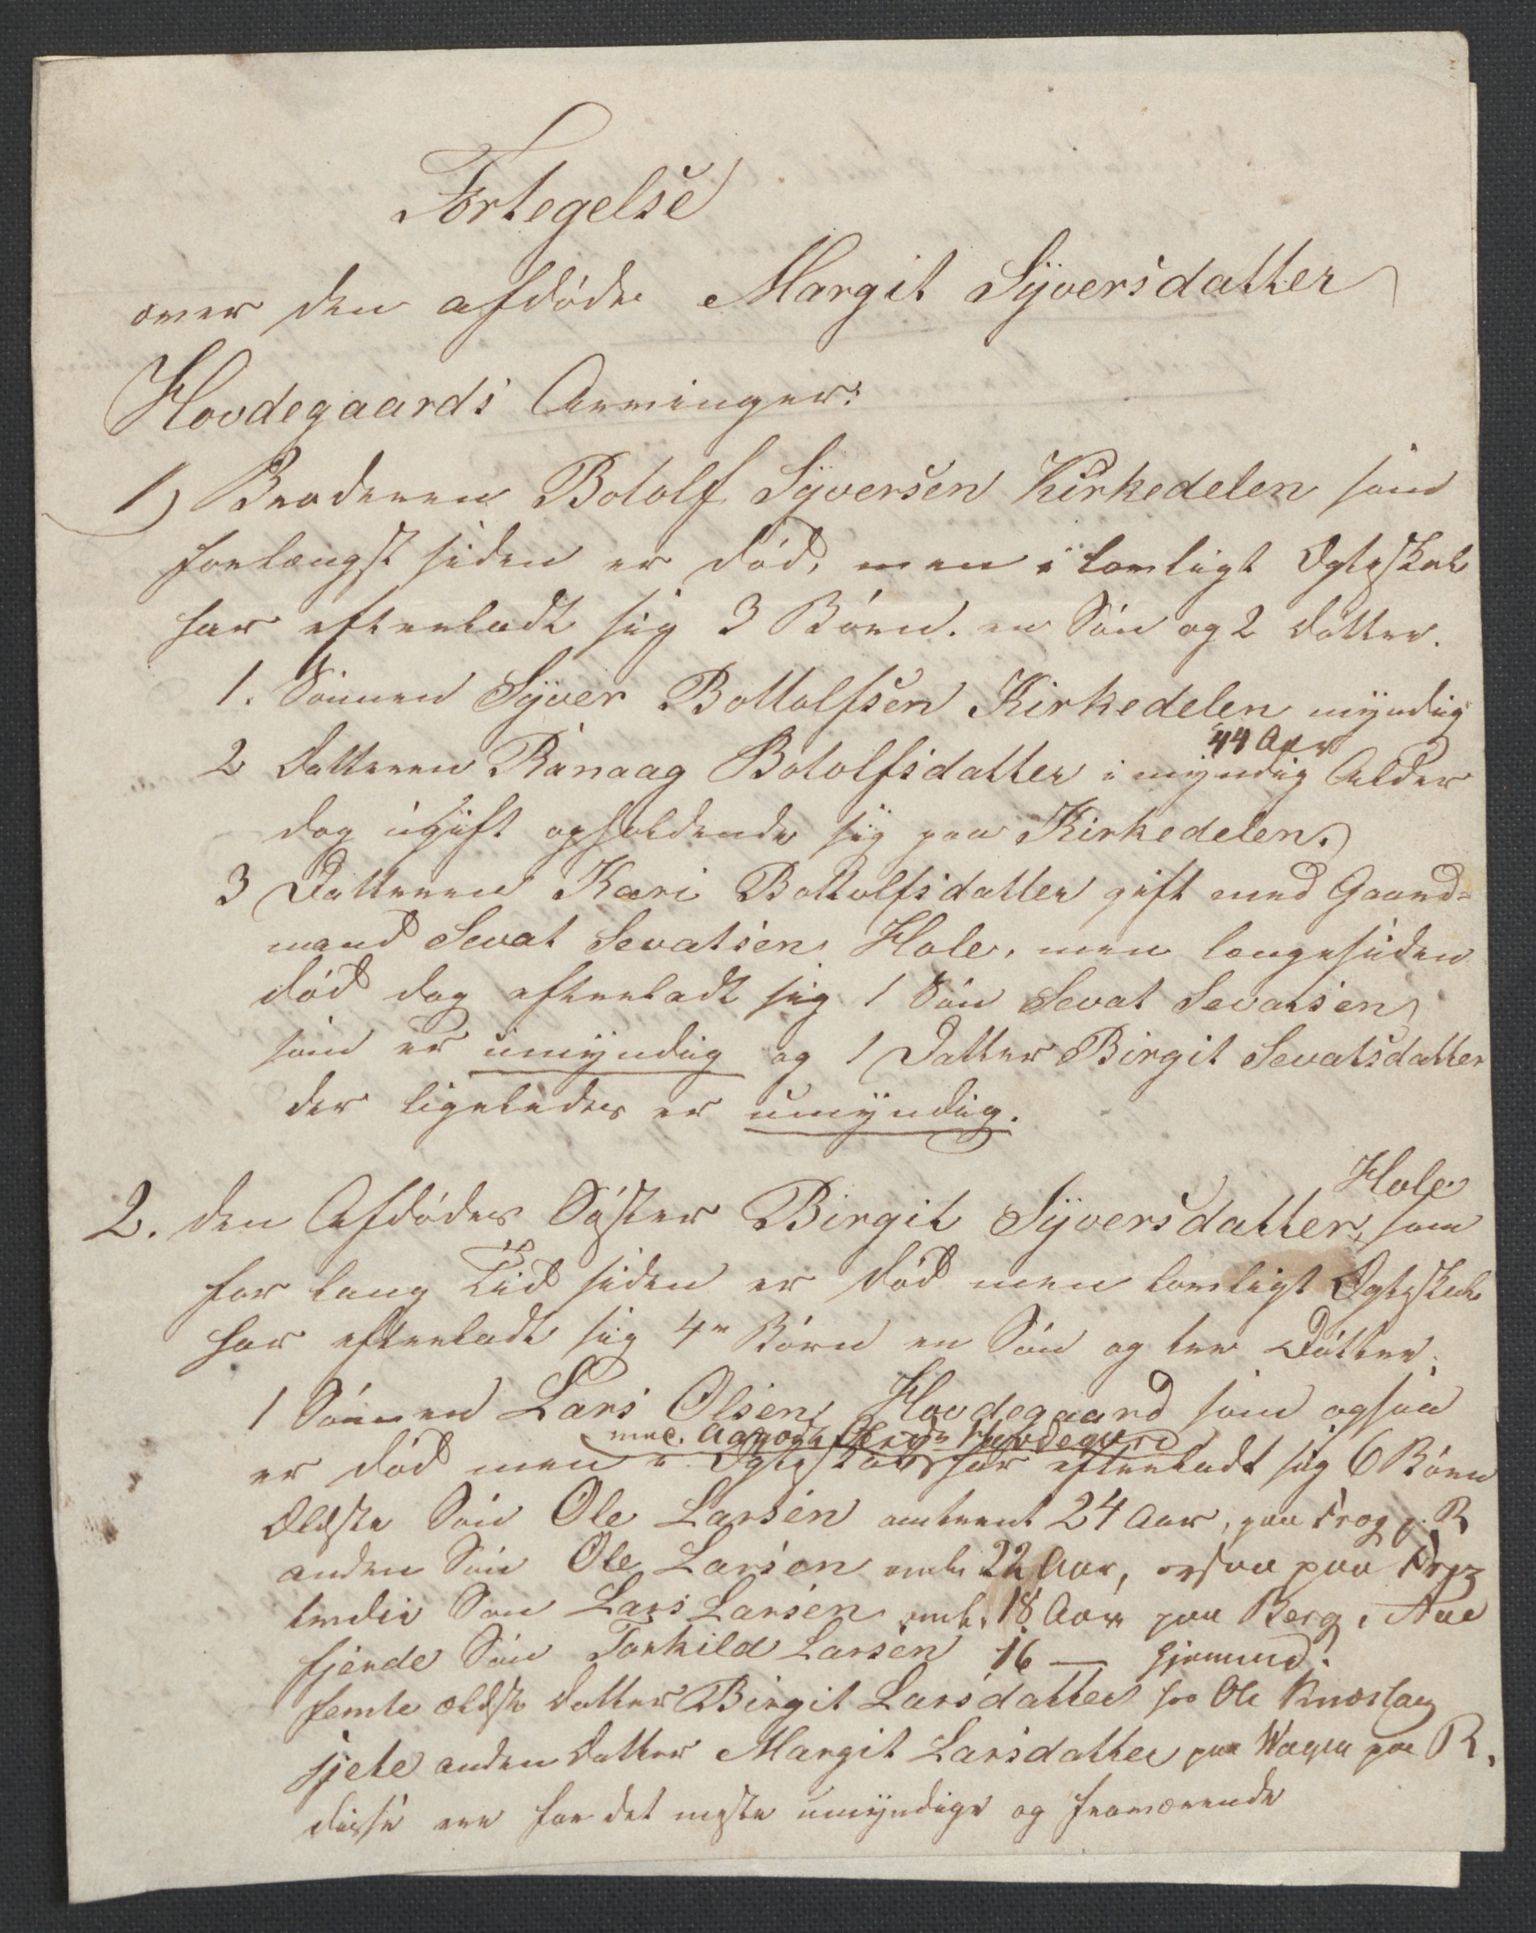 Fortegelse
over den afdøde Margit Syversdatter
Hovdegaards Arvinger:
1) Broderen Botolf Syversen Kirkedelen som
forlængst siden er død, men i lovligt Ægteskab
har efterladt sig 3 Børn. en Søn og 2 Døttre.
1. Sønnen Syver Bottolfsen Kirkedelen myndig
44 Aar
2 Datteren Ranaag Botolfsdatter i myndig Alder
dog ugift opholdende sig paa Kirkedelen.
3 Datteren Kari Bottolfsdatter gift med Gaard=
mand Sevat Sevatsen Hole, men længesiden
død dog efterladt sig 1 Søn Sevat Sevatsen
som er umyndig og 1 Datter Birgit Sevatsdatter
der ligeledes er umyndig.
Hole
2. den Afdødes Søster Birgit Syversdatter, som
for lang Tid siden er død men lovligt Ægteskab
har efterladt sig 4re Børn en Søn og tre Døttre.
1 Sønnen Lars Olsen Hovdegaard som ogsaa
med Aagot Hovdegard
er død men i Ægteskab har efterladt sig 6 Børn
Ældste Søn Ole Larsen omtrent 24 Aar, paa Frog p. R
anden Søn Ole Larsen omtr. 22 Aar, ogsaa paa Frog
tredie Søn Lars Larsen omtr. 18 Aar paa Berg i Aae
fjerde Søn Torkild Larsen 16 —
femte ældste Datter Birgit Larsdatter hos Ole
sjete anden Datter Margit Larsdatter paa paa R.
disse ere for det meste umyndige og fraværende